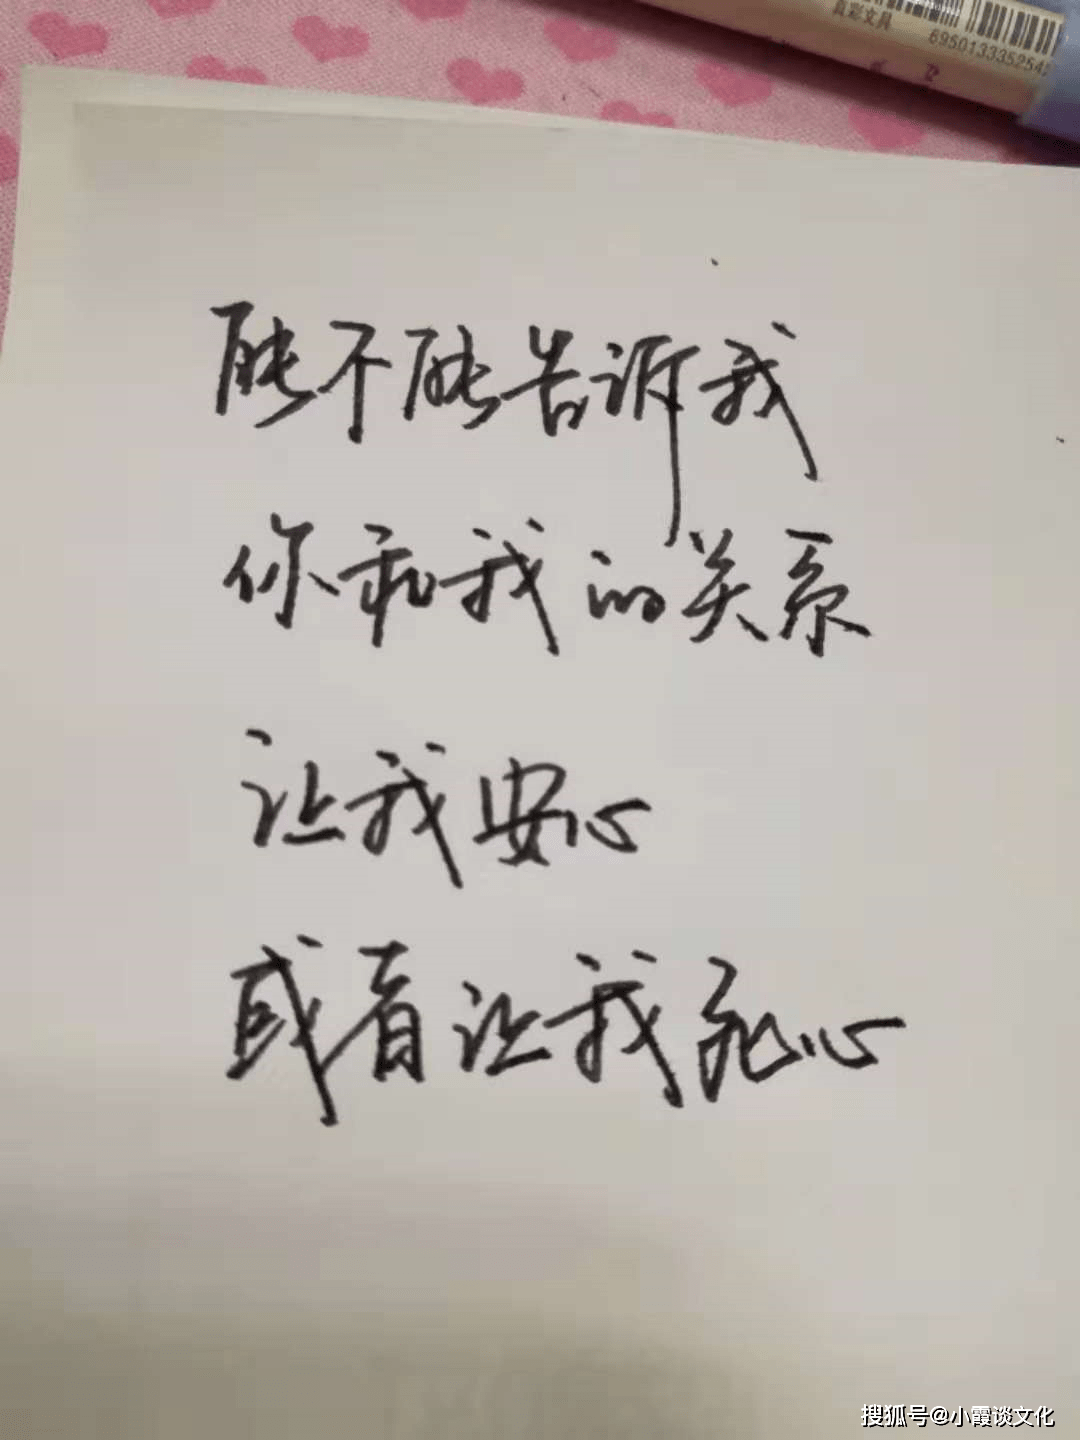 真彩文具
695013335254
能不能告诉我
你和我的关系
让我安心
或者让我死心
搜狐号@小霞谈文化